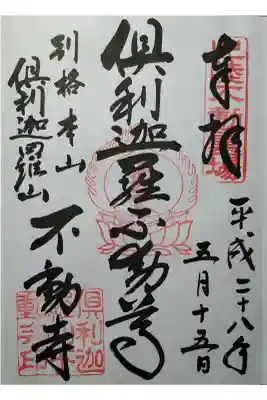 奉拝
平成二十八年
五月十五日
倶利迦羅不動尊
別格本山
倶利迦羅山
不動寺